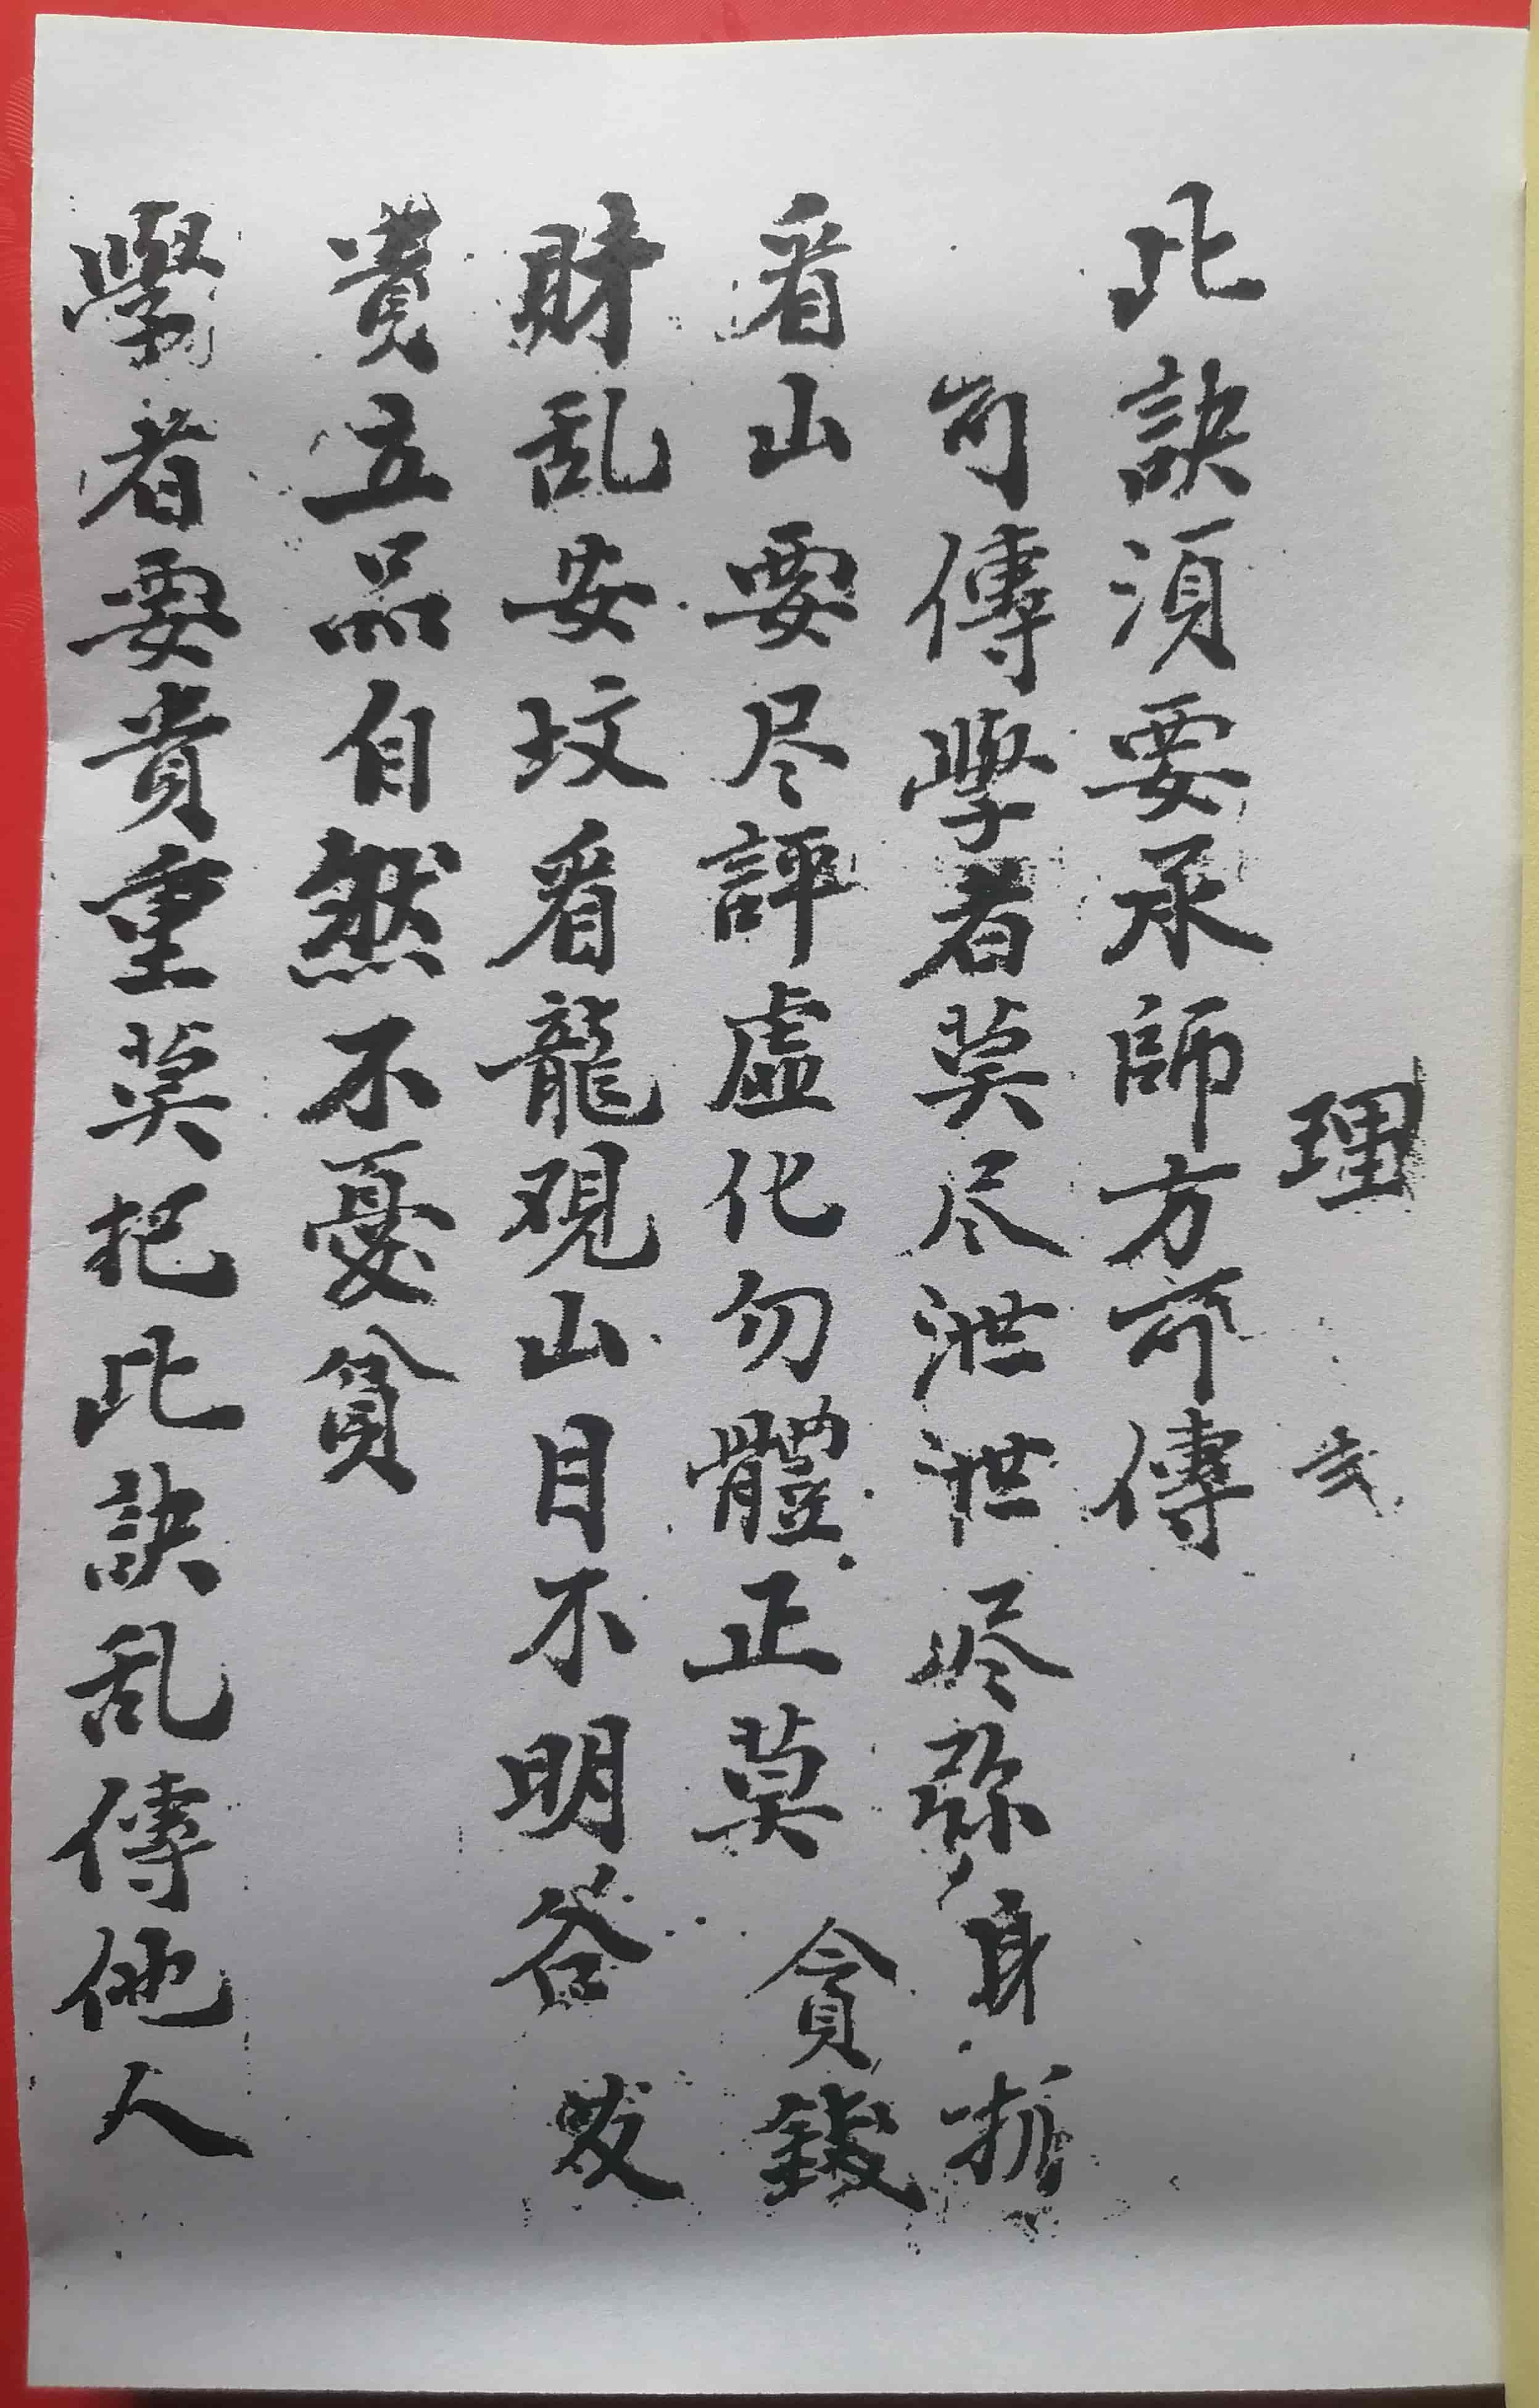 理
此訣須要承師方可傳
可傳學者莫尽泄泄尽弥身
看山要尽評虛化勿體正莫貪錢
財乱安坟看龍观山目不明各发
贵立品自然不憂貧
學者要貴重莫把此訣乱傳他人